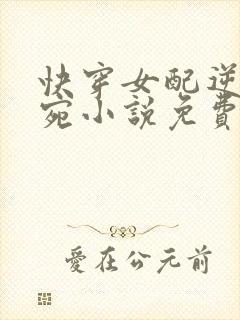 快穿女配逆
宛小說免費
愛在公元前